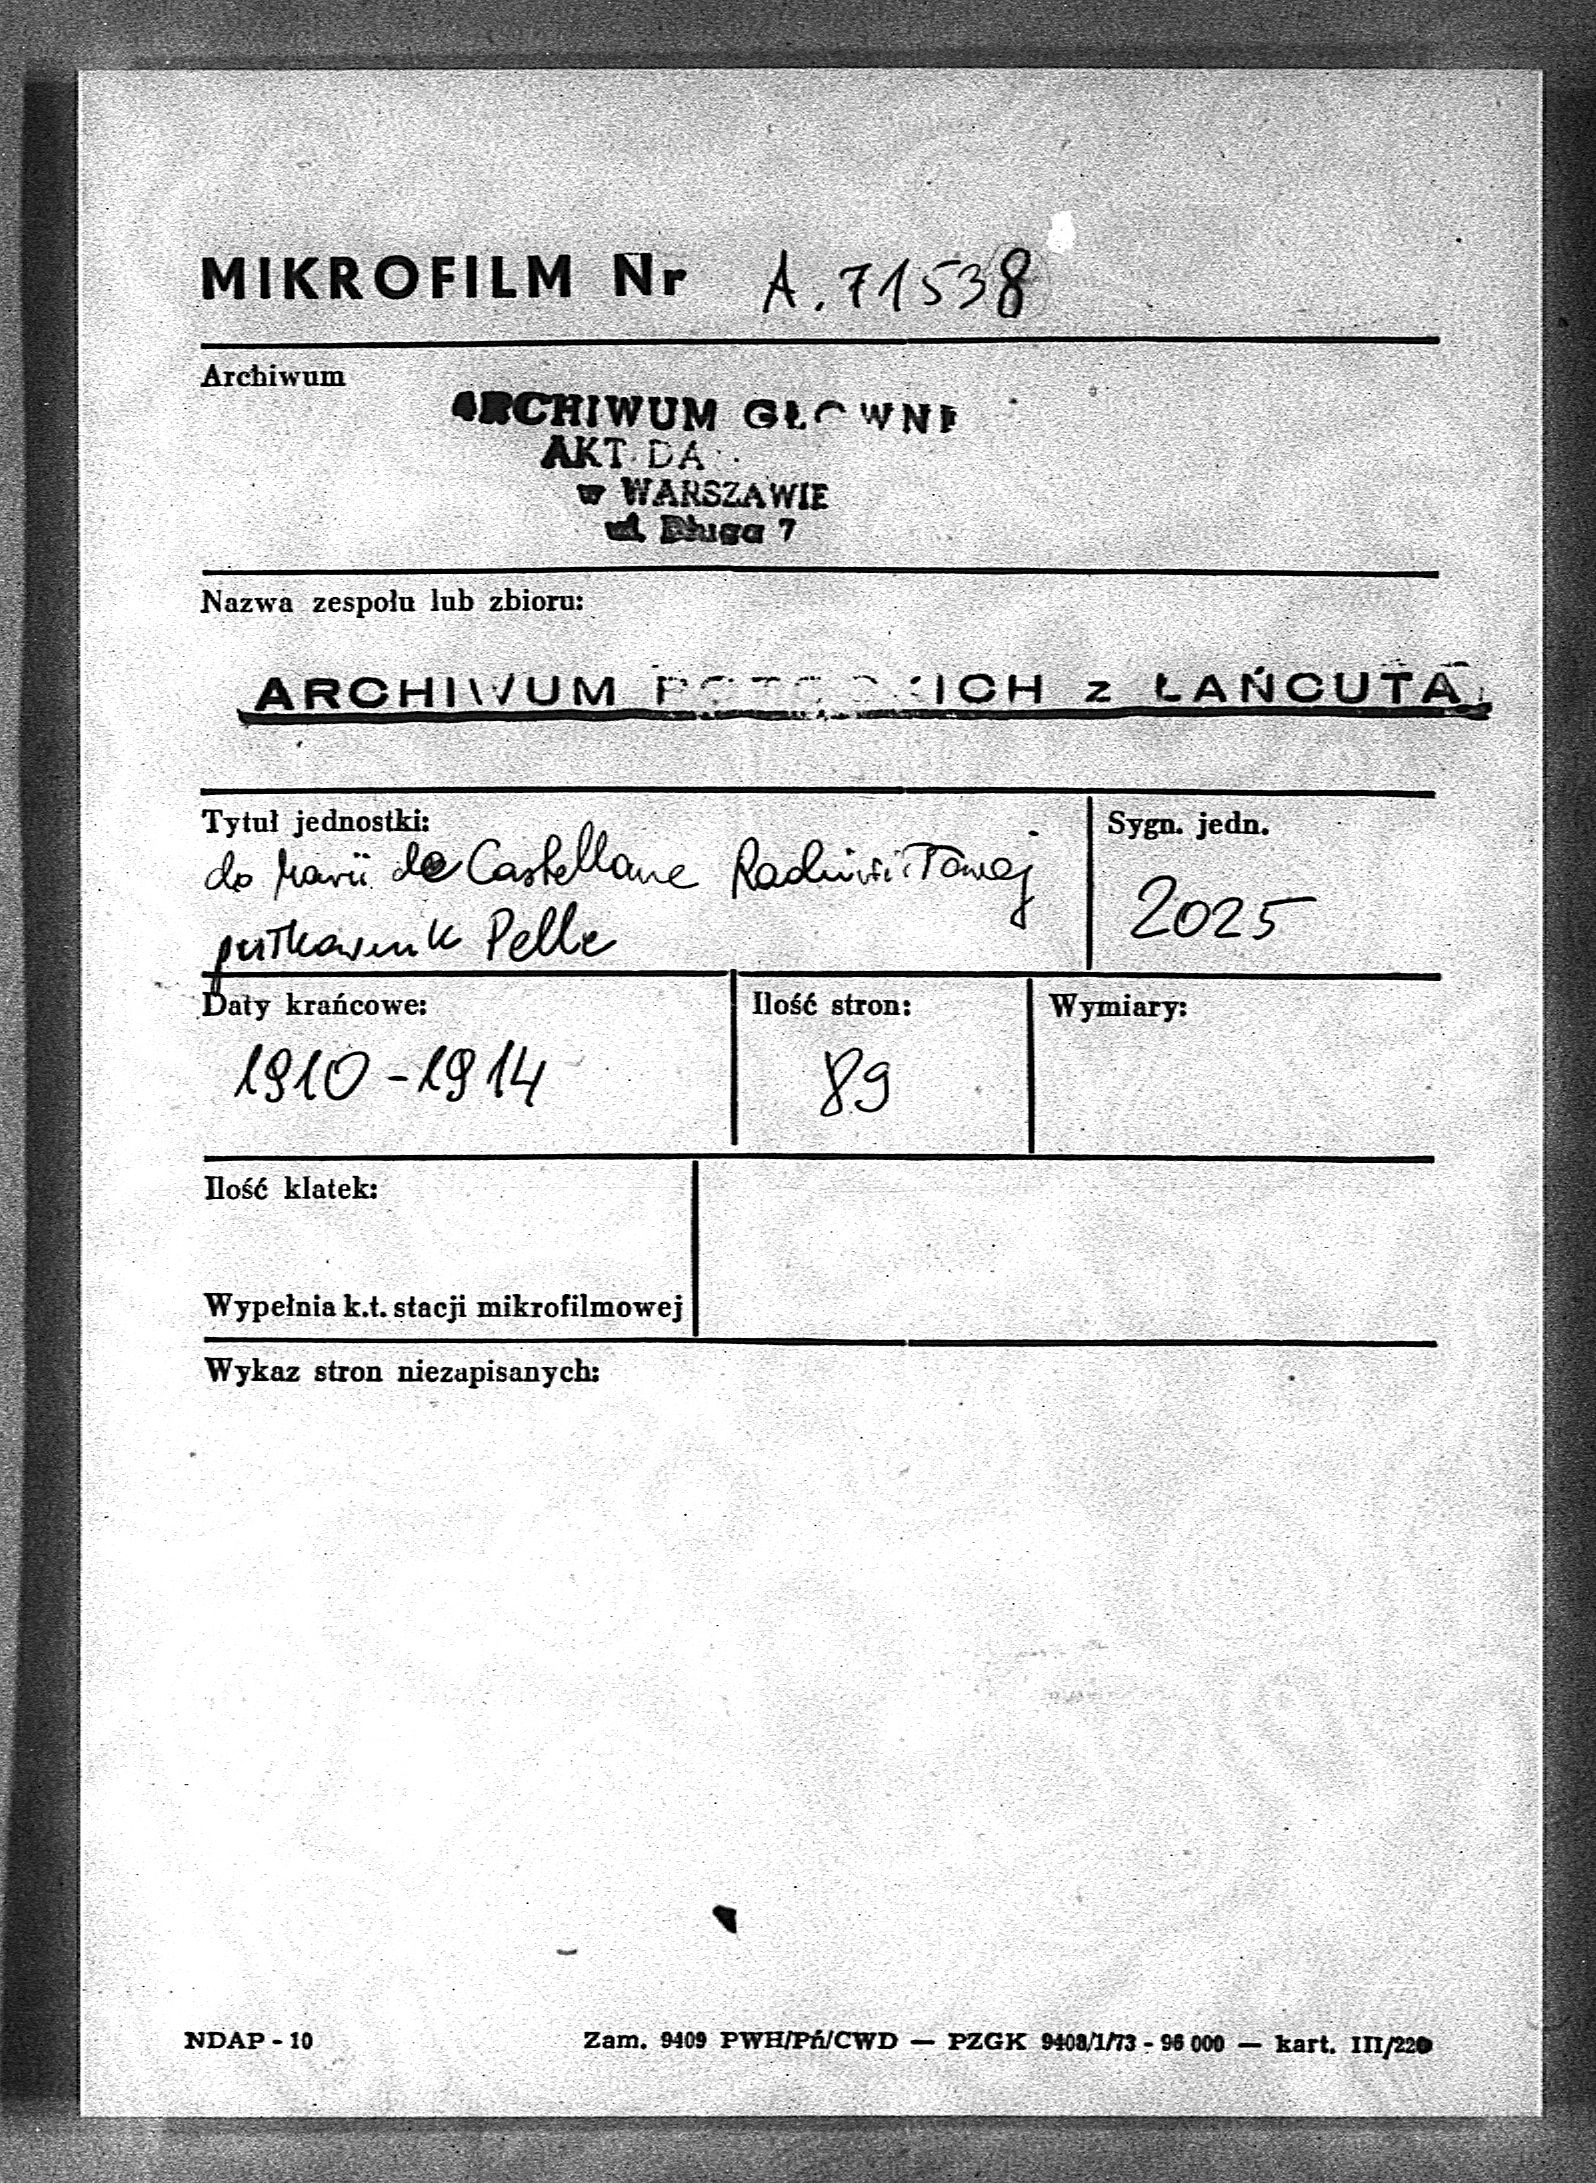 MIKROFILM Nr A. 71538
Archiwum
ARCHIWUM GŁOWNE
AKT DA
w WARSZAWIE
ul. Długa 7
Nazwa zespołu lub zbioru:
ARCHIWUM POTOCKICH z ŁAŃCUTA
Tytuł jednostki:
Sygn. jedn.
do Marii de Castellane Radziwiłłowej
2025
pułkownik Pelle
Daty krańcowe:
Ilość stron:
Wymiary:
1910-1914
89
Ilość klatek:
Wypełnia k.t. stacji mikrofilmowej
Wykaz stron niezapisanych:
NDAP - 10
Zam. 9409 PWH/Pń/CWD — PZGK 9408/1/73 - 96 000 — kart. III/220